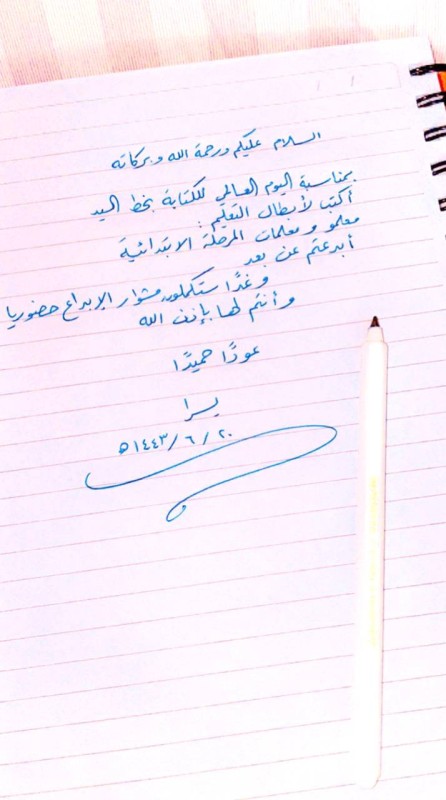 السلام عليكم ورحمة الله وبركاته
بمناسبة اليوم العالمي للكتابة بخط اليد
أكتب لأبطال التعليم :
معلمو ومعلمات المرحلة الابتدائية
أبدعتم عن بعد
وغدًا ستكملون مشوار الإبداع حضوريا
وأنتم لها بإذن الله
عودًا حميدًا
يسرا
٢٠ / ٦ / ١٤٤٣ه